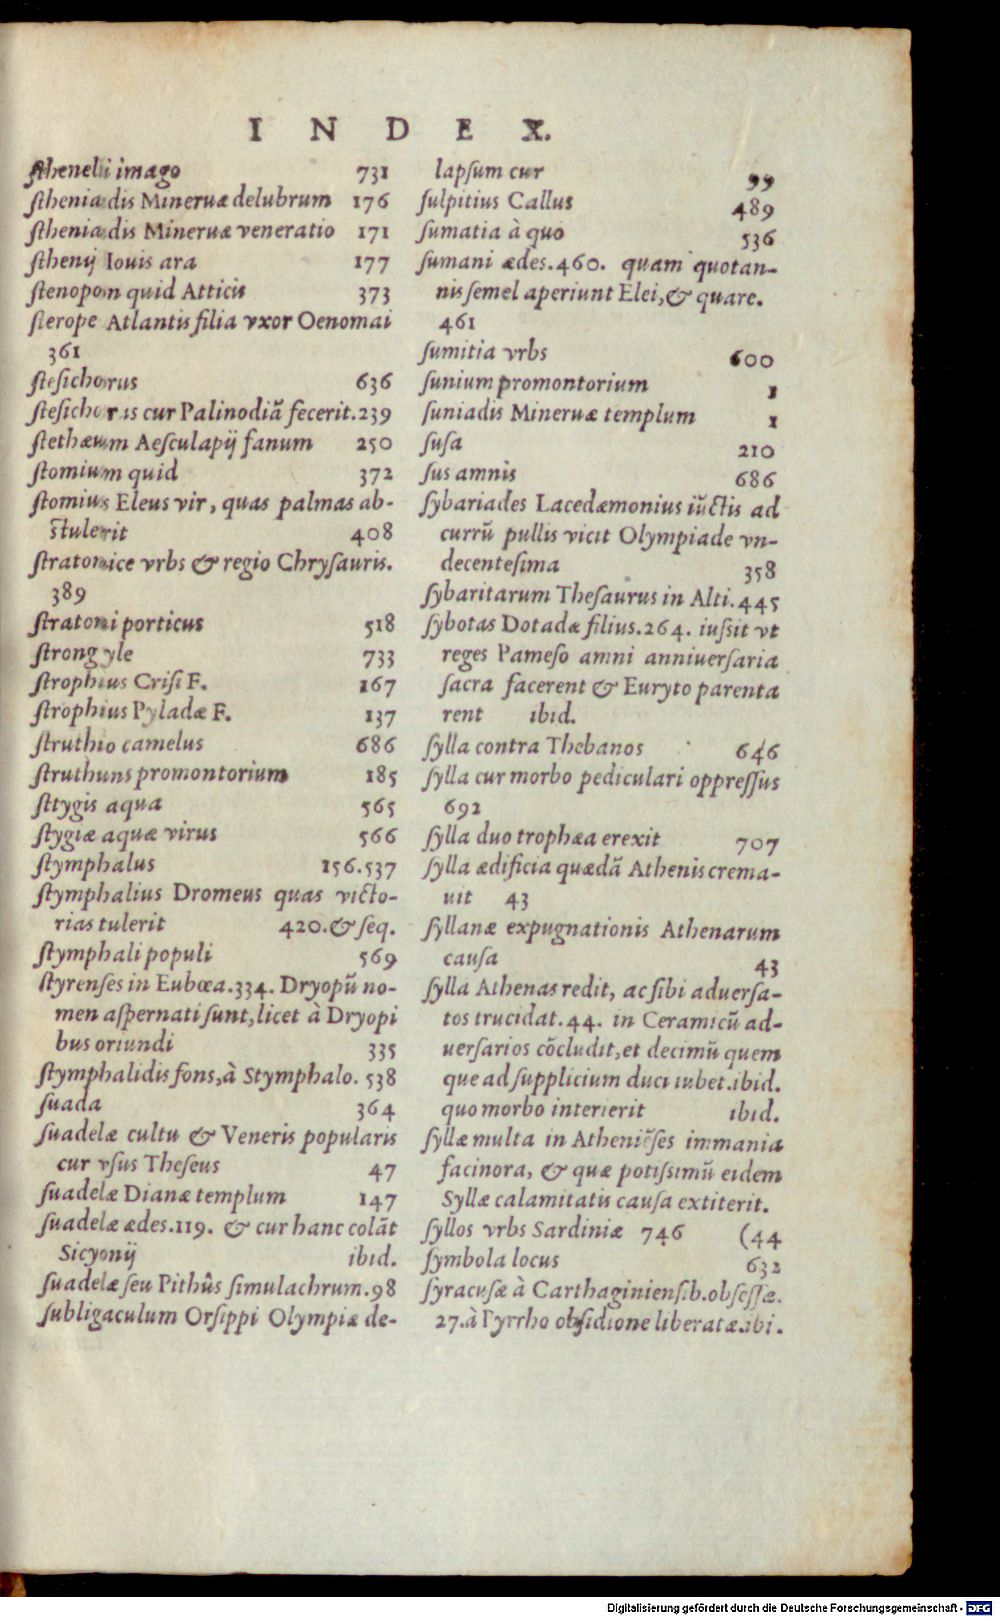 I N D E X.
ſthenelii imago 731
ſtheniadis Mineruæ delubrum 176
ſtheniadis Mineruæ veneratio 171
ſthenij Iouis ara 177
ſtenopon quid Atticis 373
ſterope Atlantis filia vxor Oenomai
361
ſteſichorus 636
ſteſichorus cur Palinodiã fecerit.239
ſtethæum Aeſculapij fanum 250
ſtomium quid 372
ſtomius Eleus vir, quas palmas ab-
ſtulerit 408
ſtratonice vrbs & regio Chryſauris.
389
ſtratoni porticus 518
ſtrongyle 733
ſtrophius Criſi F. 167
ſtrophius Pyladæ F. 137
ſtruthio camelus 686
ſtruthuns promontorium 185
ſttygis aqua 565
ſtygiæ aquæ virus 566
ſtymphalus 156.537
ſtymphalius Dromeus quas victo-
rias tulerit 420.& ſeq.
ſtymphali populi 569
ſtyrenſes in Eubœa.334. Dryopũ no-
men aſpernati ſunt, licet à Dryopi
bus oriundi 335
ſtymphalidis fons, à Stymphalo. 538
ſuada 364
ſuadelæ cultu & Veneris popularis
cur vſus Theſeus 47
ſuadelæ Dianæ templum 147
ſuadelæ ædes.119. & cur hanc colãt
Sicyonij ibid.
ſuadelæ ſeu Pithûs ſimulachrum.98
ſubligaculum Orſippi Olympiæ de-
lapſum cur 99
ſulpitius Callus 489
ſumatia à quo 536
ſumani ædes.460. quam quotan-
nis ſemel aperiunt Elei, & quare.
461
ſumitia vrbs 600
ſunium promontorium 1
ſuniadis Mineruæ templum 1
ſuſa 210
ſus amnis 686
ſybariades Lacedæmonius iũctis ad
currũ pullis vicit Olympiade vn-
decenteſima 358
ſybaritarum Theſaurus in Alti.445
ſybotas Dotadæ filius.264. iuſsit vt
reges Pameſo amni anniuerſaria
ſacra facerent & Euryto parenta
rent ibid.
ſylla contra Thebanos 646
ſylla cur morbo pediculari oppreſſus
692
ſylla duo trophæa erexit 707
ſylla ædificia quædã Athenis crema-
uit 43
ſyllanæ expugnationis Athenarum
cauſa 43
ſylla Athenas redit, ac ſibi aduerſa-
tos trucidat.44. in Ceramicũ ad-
uerſarios cõcludit, et decimũ quem
que ad ſupplicium duci iubet.ibid.
quo morbo interierit ibid.
ſyllæ multa in Atheniẽſes immania
facinora, & quæ potiſsimũ eidem
Syllæ calamitatis cauſa extiterit.
ſyllos vrbs Sardiniæ 746 (44
ſymbola locus 632
ſyracuſæ à Carthaginienſib.obſeſſæ.
27.à Pyrrho obſidione liberatæ.ibi.
Digitalisierung gefördert durch die Deutsche Forschungsgemeinschaft - DFG